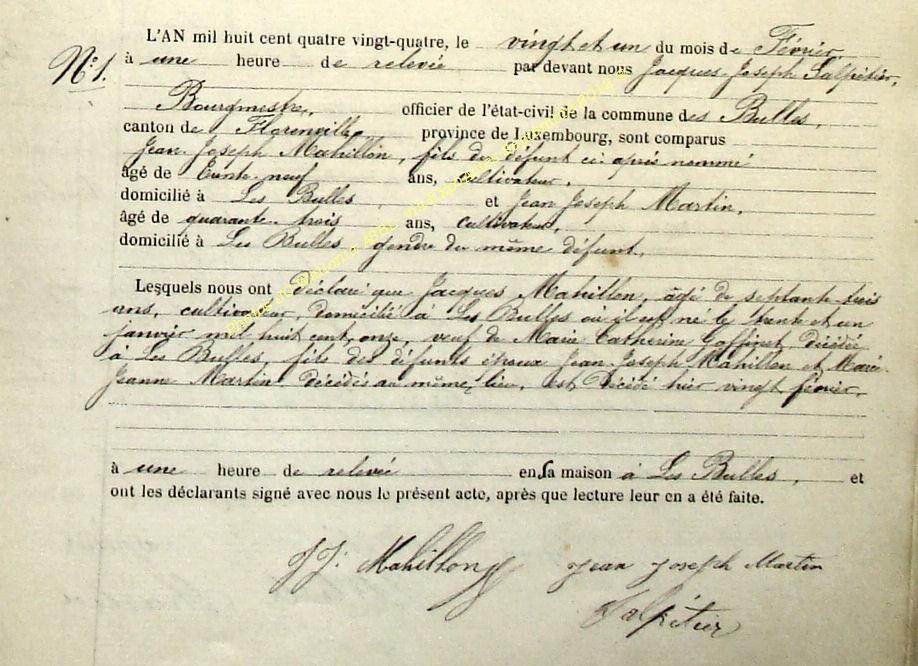 L'AN mil huit cent quatre vingt-quatre, le vingt et un du mois de Février
N° 1. à une heure de relevée par devant nous Jacques Joseph Salpétier,
Bourgmestre, officier de l'état-civil de la commune des Bulles,
canton de Florenville, province de Luxembourg, sont comparus
Jean Joseph Mahillon, fils du défunt ci après nommé
âgé de trente-neuf ans, cultivateur,
domicilié à Les Bulles, et Jean Joseph Martin,
âgé de quarante trois ans, cultivateur,
domicilié à Les Bulles gendre du même défunt,
Lesquels nous ont déclaré que Jacques Mahillon, âgé de septante-trois
ans, cultivateur, domicilié à Les Bulles où il est né le trente et un
janvier mil huit cent onze, veuf de Marie Catherine Goffinet, décédée
à Les Bulles, fils des défunts époux Jean Joseph Mahillon et Marie
Jeanne Martin décédés au même lieu, est décédé hier vingt février,
à une heure de relevée en sa maison à Les Bulles, et
ont les déclarants signé avec nous le présent acte, après que lecture leur en a été faite.
J J: Mahillon Jean Joseph Martin
Salpétier